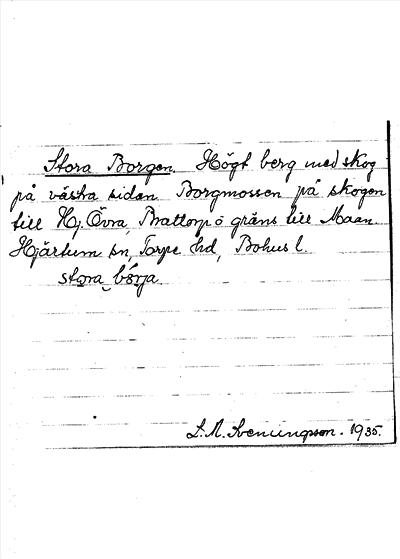 Stora Borgen. Högt berg med skog
på västra sidan Borgmossen på skogen
till Hj. Övra, Brattorp ö gräns till Maan.
Hjärtum sn, Torpe hd, Bohus l.
stora bórja.
L. M. Svenungsson. 1935.